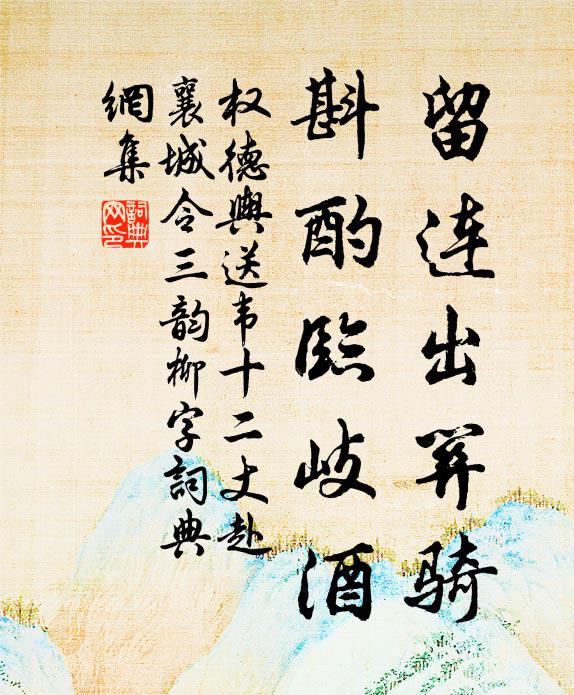 留连出关骑
斟酌临岐酒
权德舆送韦十二丈赴
襄城令三韵柳字词典
网集
词典网印